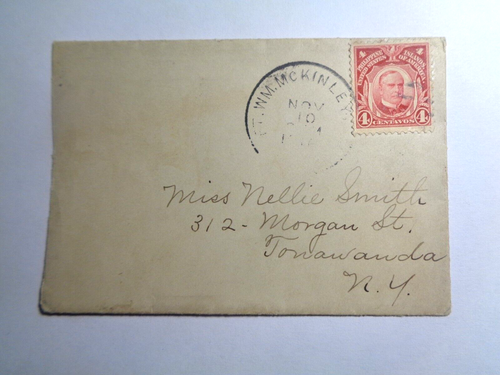 4 4
PHILIPPINE ISLANDS
UNITED STATES OF AMERICA
4 CENTAVOS 4
FT. WM. McKINLEY
NOV
10
Miss Nellie Smith
312- Morgan St.
Tonawanda
N.Y.